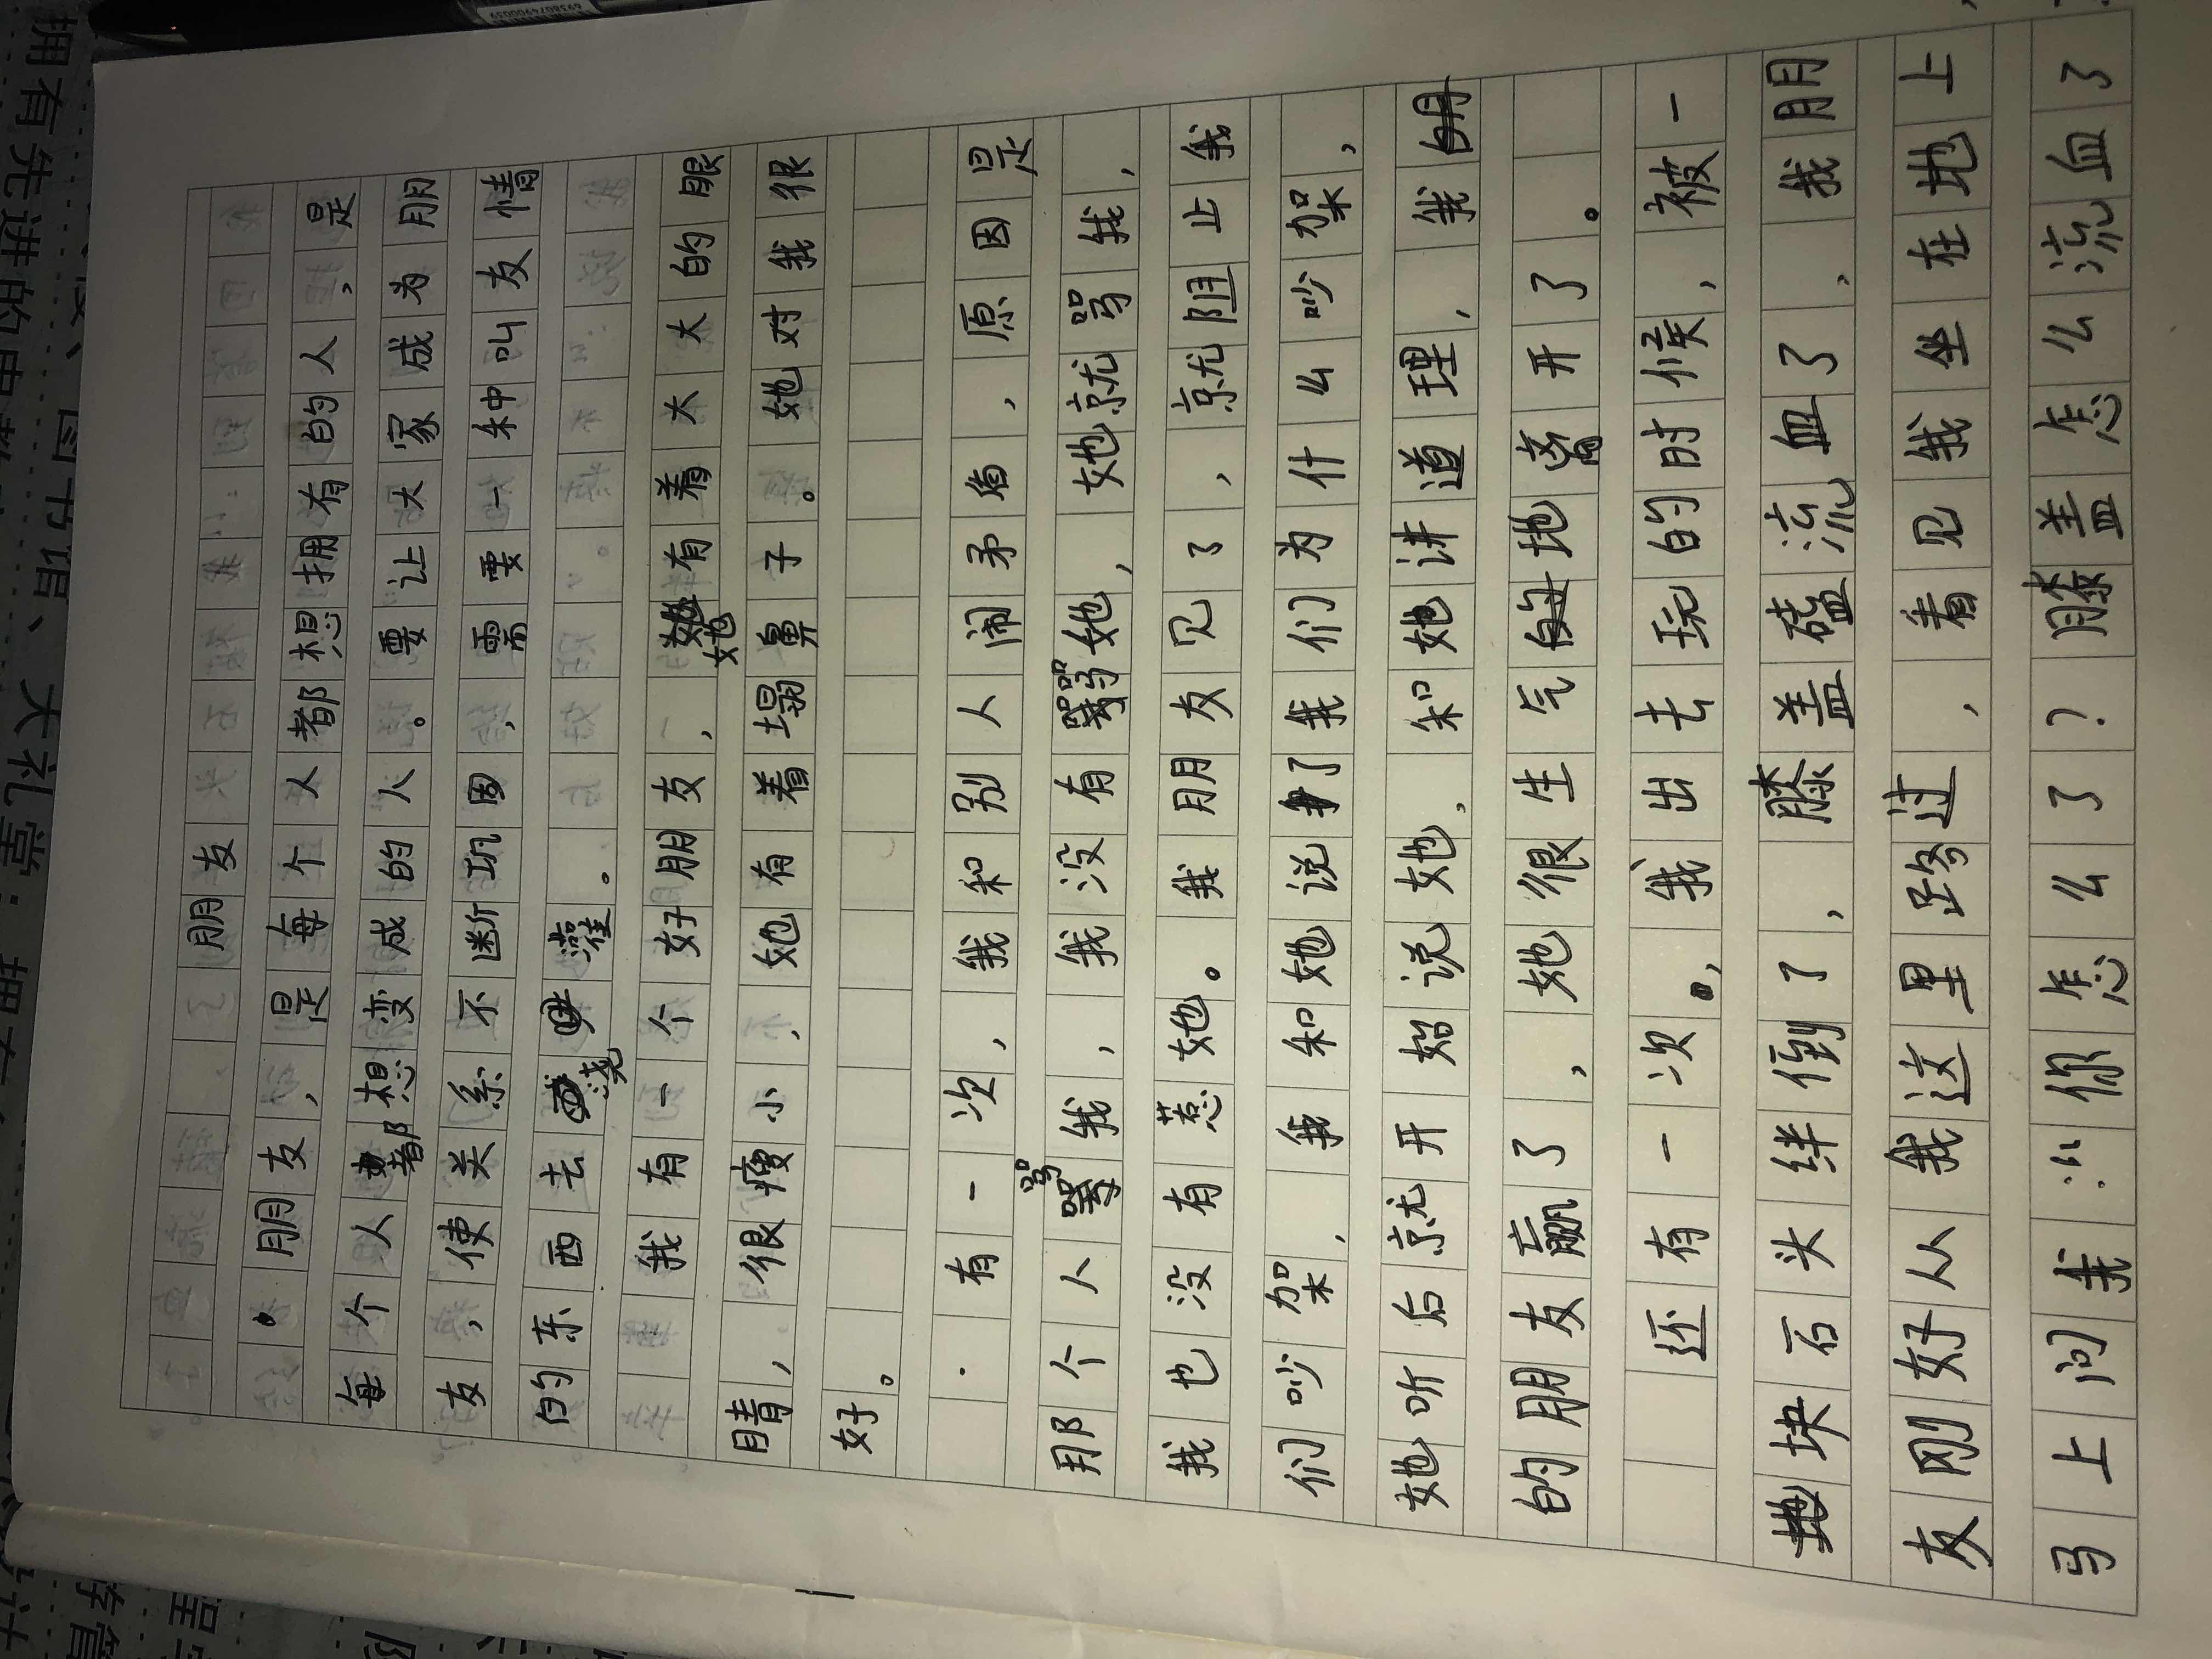 朋友
朋友，是每个人都想拥有的人，是
每个人都想变成的人。要让大家成为朋
友，使关系不断巩固，需要一种叫友情
的东西去浇灌。
我有一个好朋友，她有着大大的眼
睛，很瘦小，她有着塌鼻子。她对我很
好。
有一次，我和别人闹矛盾，原因是
那个人骂我，我没有骂她，她就骂我，
我也没有惹她。我朋友见了，就阻止我
们吵架，我和她说了我们为什么吵架，
她听后就开始说她，和她讲道理，我
的朋友赢了，她很生气地离开了。
还有一次，我出去玩的时候，被一
块石头绊倒了，膝盖磕流血了，我朋
友刚好从我这里路过，看见我坐在地上
马上问我：“你怎么了？膝盖怎么流血了